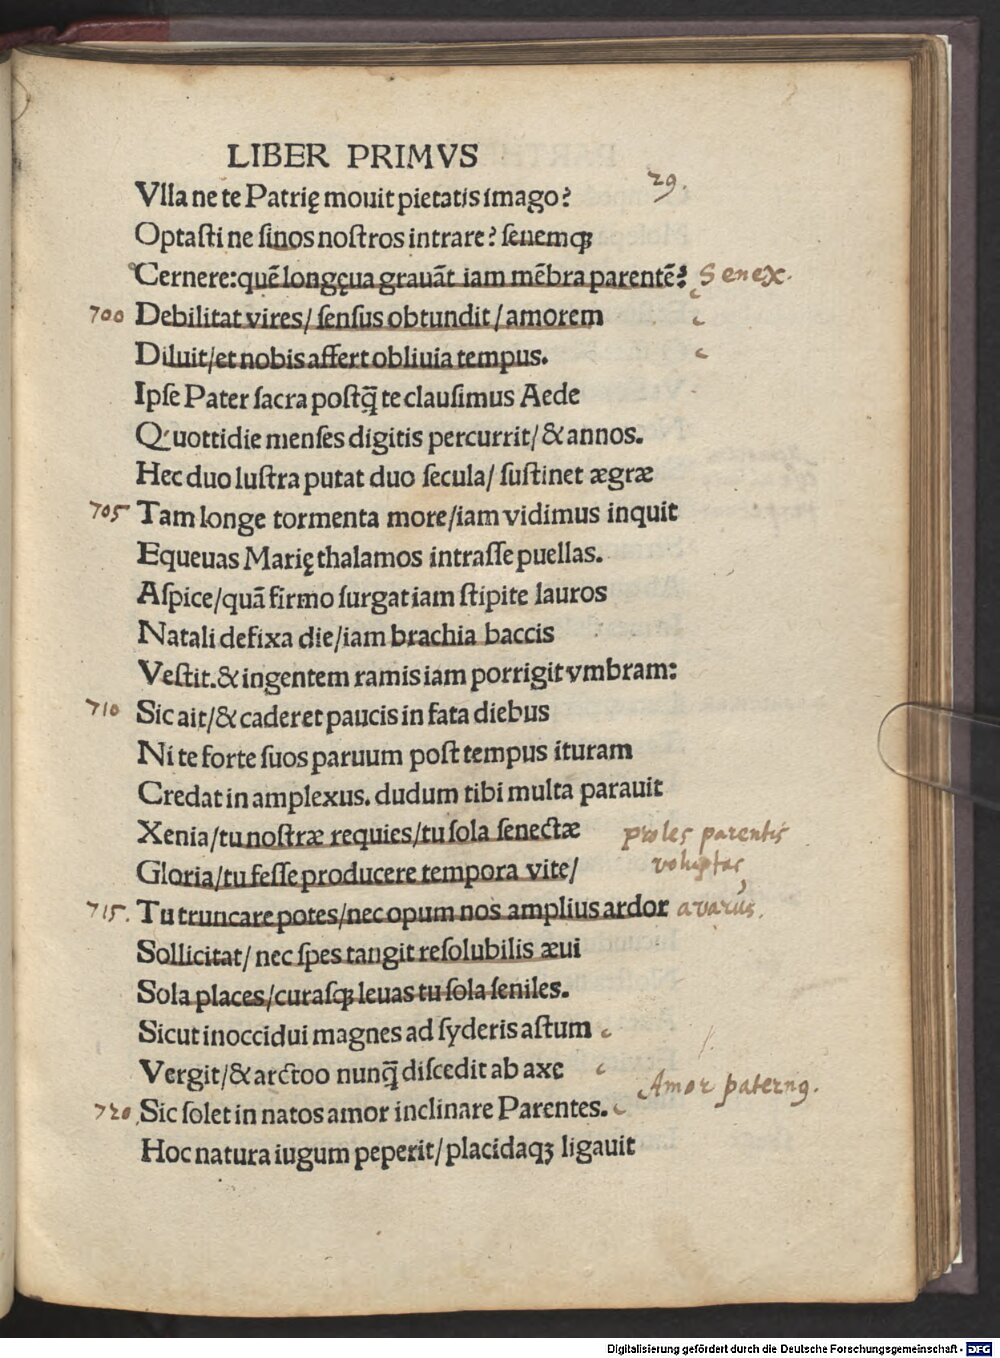 LIBER PRIMVS
29.
Vlla ne te Patrię mouit pietatis imago?
Optasti ne sinos nostros intrare? senemqꝫ
Cernere: quē longęua grauāt iam mēbra parentē? Senex.
700 Debilitat vires/ sensus obtundit/ amorem
Diluit/ et nobis affert obliuia tempus.
Ipse Pater sacra postq̄ te clausimus Aede
Quottidie menses digitis percurrit/ & annos.
Hec duo lustra putat duo secula/ sustinet ægræ
705 Tam longe tormenta more/ iam vidimus inquit
Equeuas Marię thalamos intrasse puellas.
Aspice/ quā firmo surgat iam stipite lauros
Natali defixa die/ iam brachia baccis
Vestit. & ingentem ramis iam porrigit vmbram:
710 Sic ait/ & caderet paucis in fata diebus
Ni te forte suos paruum post tempus ituram
Credat in amplexus. dudum tibi multa parauit
Xenia/ tu nostræ requies/ tu sola senectæ proles parentis
Gloria/ tu fesse producere tempora vite/ voluptas
715. Tu truncare potes/ nec opum nos amplius ardor avarus.
Sollicitat/ nec spes tangit resolubilis æui
Sola places/ curasqꝫ leuas tu sola seniles.
Sicut inoccidui magnes ad syderis astum
Vergit/ & arctoo nunq̄ discedit ab axe
720. Sic solet in natos amor inclinare Parentes. Amor paternꝰ.
Hoc natura iugum peperit/ placidaqꝫ ligauit
Digitalisierung gefördert durch die Deutsche Forschungsgemeinschaft - DFG